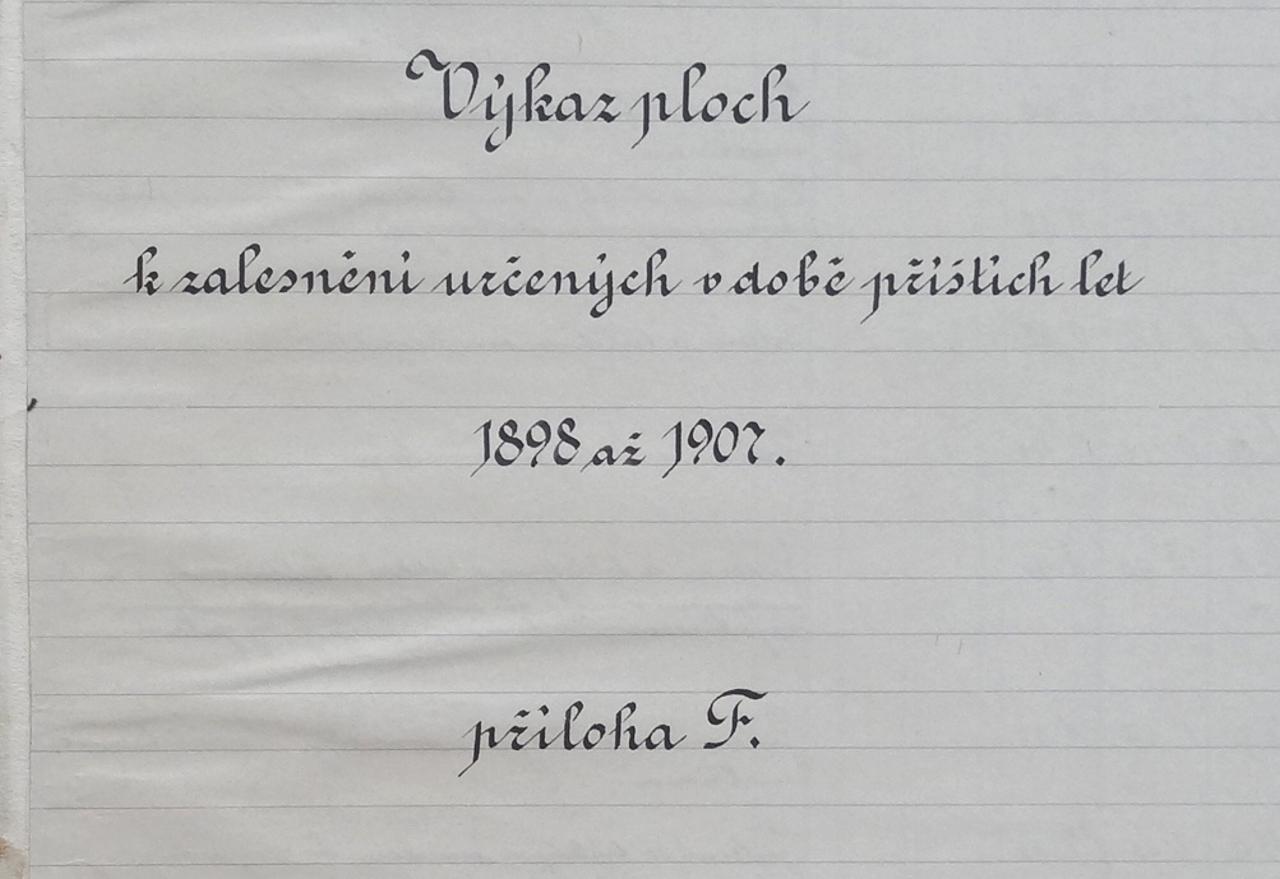 Výkaz ploch
k zalesnění určených v době příštích let
1898 až 1907.
příloha F.